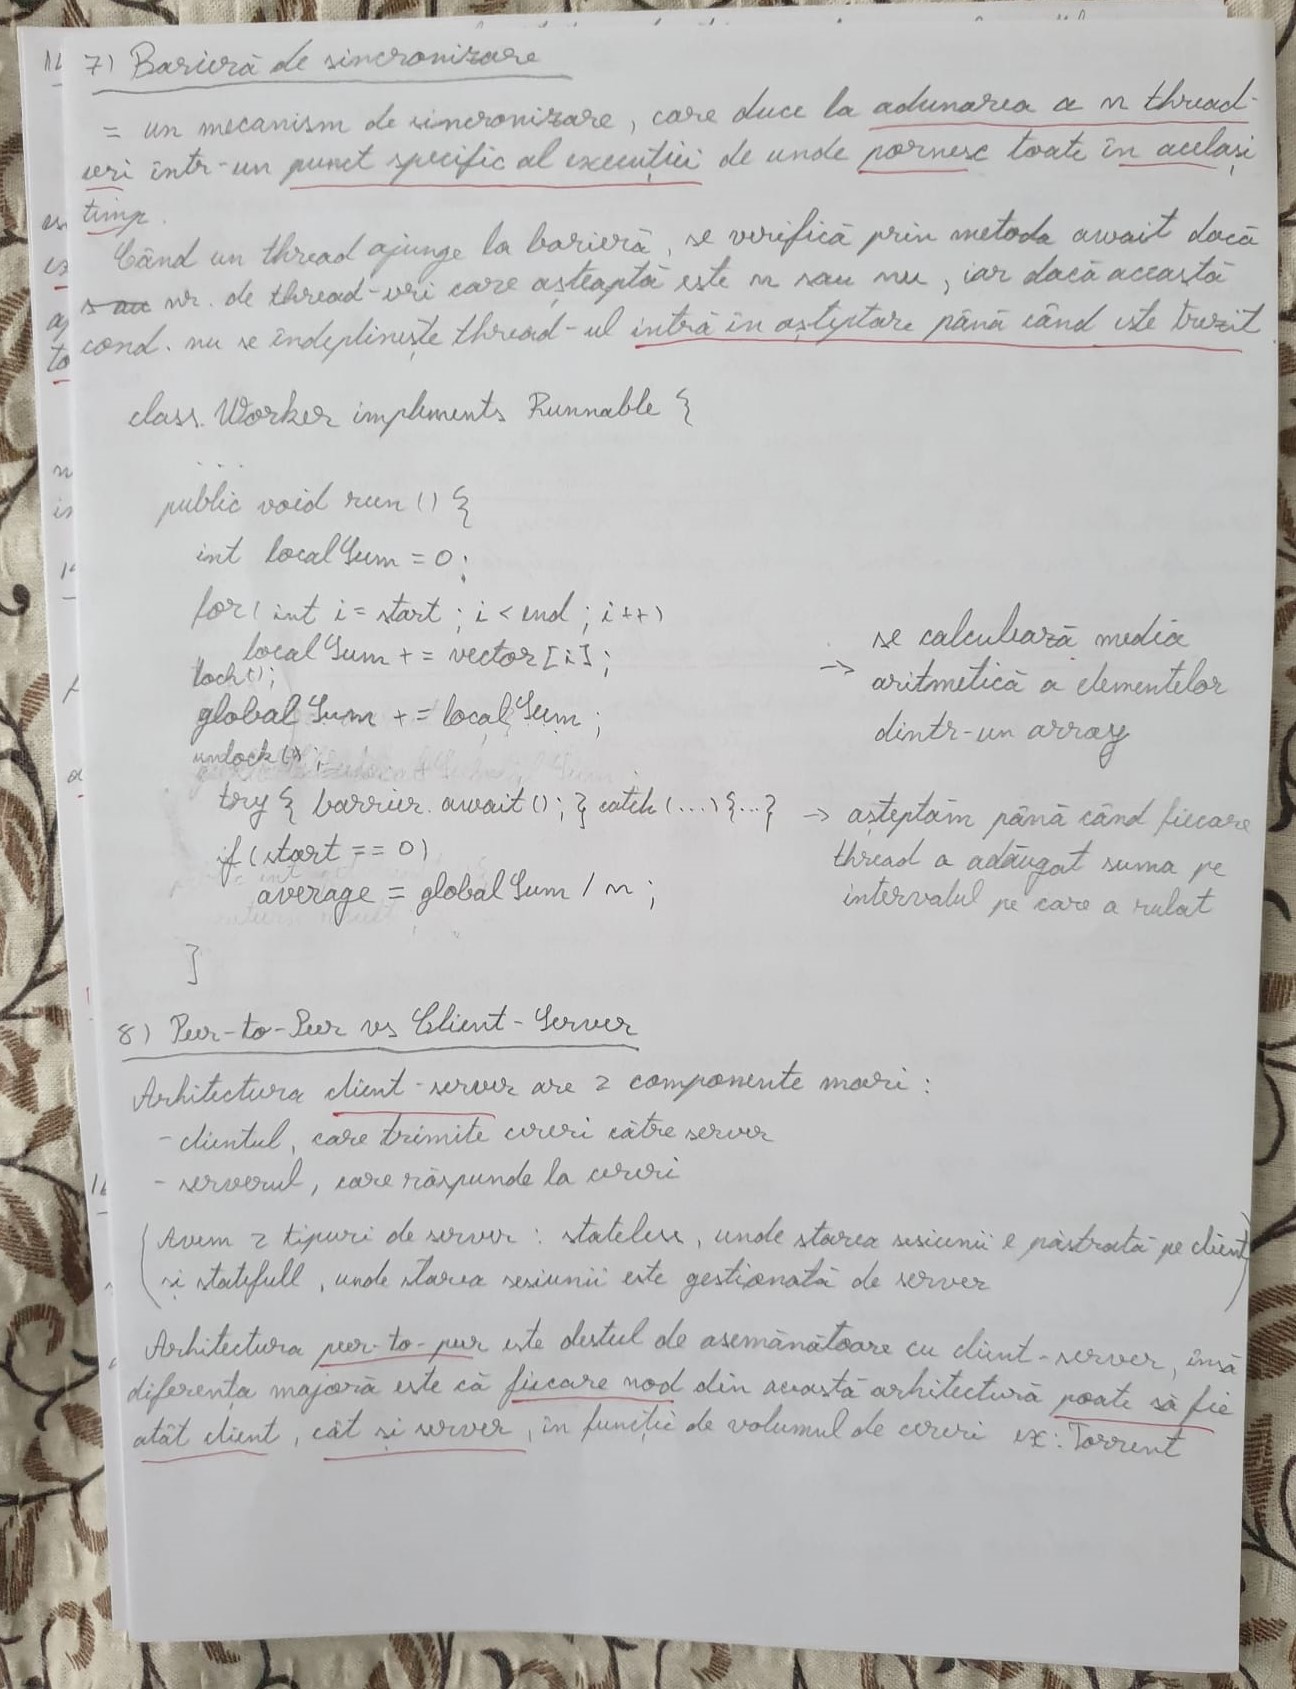 7) Barieră de sincronizare
= un mecanism de sincronizare, care duce la adunarea a n thread-
uri într-un punct specific al execuției de unde pornesc toate în același
timp.
Când un thread ajunge la barieră, se verifică prin metoda await dacă
nr. de thread-uri care așteaptă este n sau nu, iar dacă această
cond. nu se îndeplinește thread-ul intră în așteptare până când este trezit
class Worker implements Runnable {
...
public void run () {
int localSum = 0;
for ( int i = start ; i < end ; i++)
localSum += vector[i];
lock();
globalSum += localSum;
unlock();
try { barrier.await(); } catch (...) {...}
if (start == 0)
average = globalSum / n;
}
→ se calculează media
aritmetică a elementelor
dintr-un array
→ așteptăm până când fiecare
thread a adăugat suma pe
intervalul pe care a rulat
8) Peer-to-Peer vs Client-Server
Arhitectura client-server are 2 componente mari:
- clientul, care trimite cereri către server
- serverul, care răspunde la cereri
(Avem 2 tipuri de server: stateless, unde starea sesiunii e păstrată pe client
și statefull, unde starea sesiunii este gestionată de server)
Arhitectura peer-to-peer este destul de asemănătoare cu client-server, însă
diferența majoră este că fiecare nod din această arhitectură poate să fie
atât client, cât și server, în funcție de volumul de cereri ex: Torrent